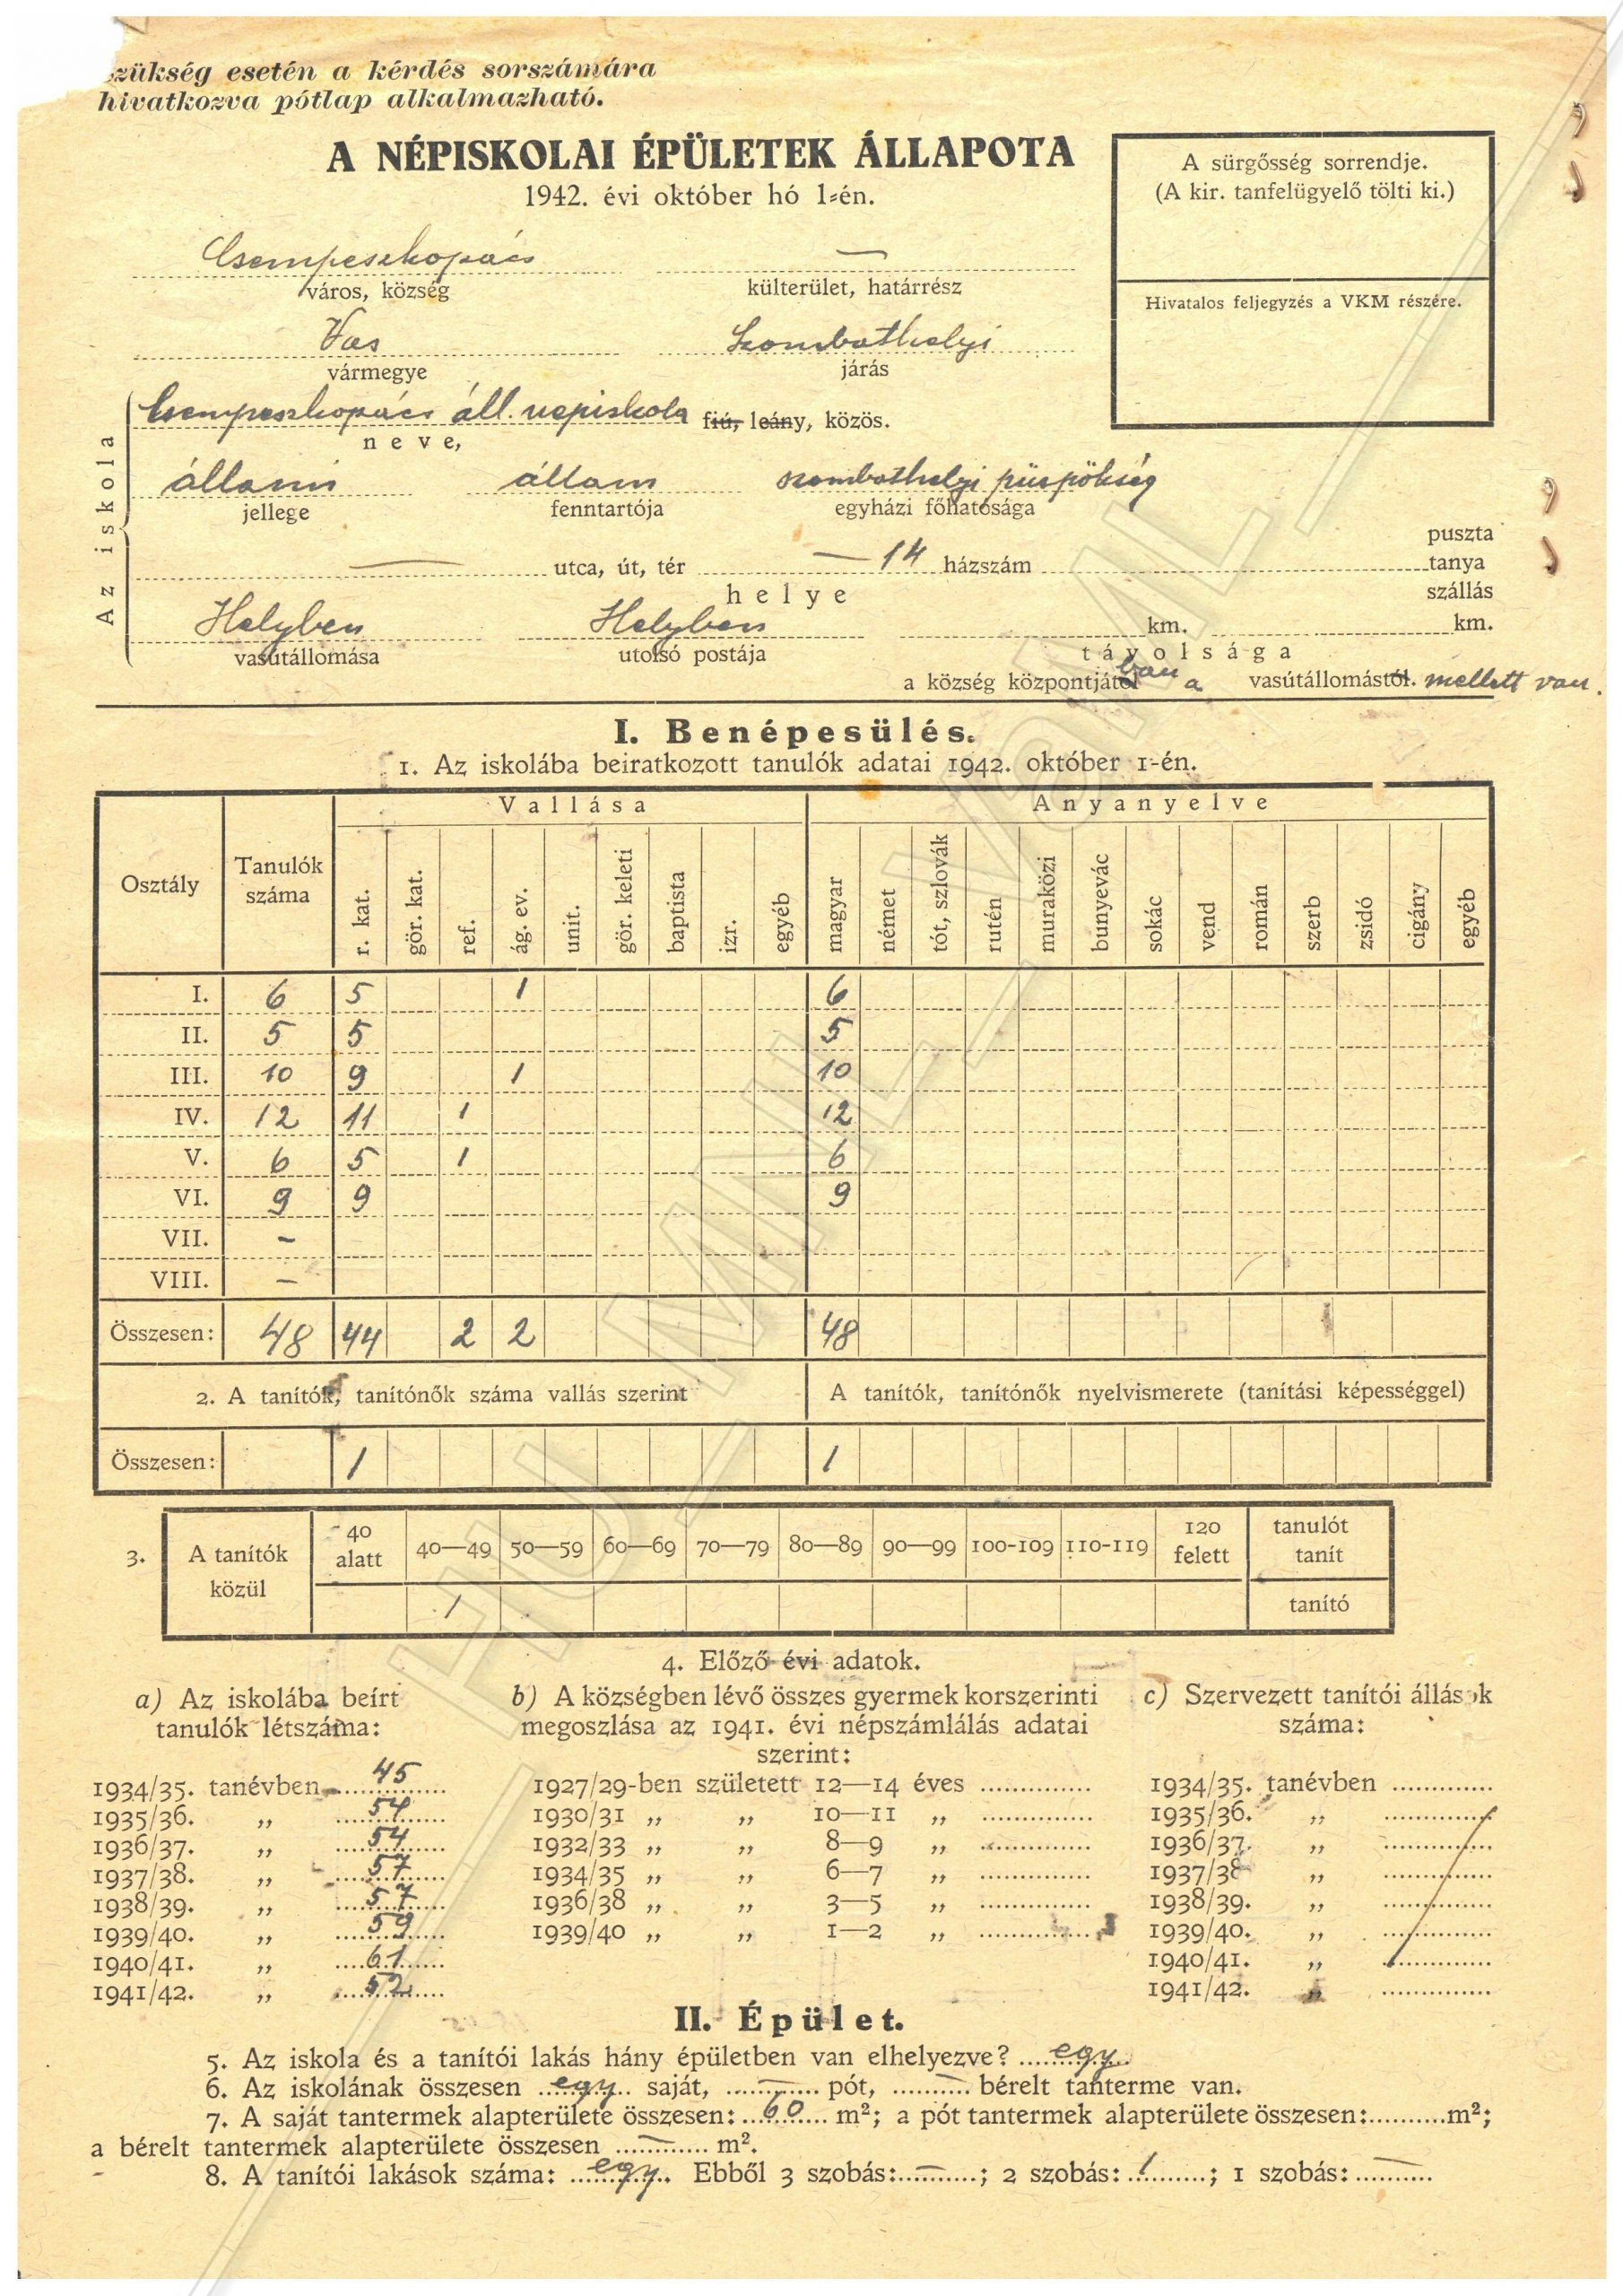 szükség esetén a kérdés sorszámára
hivatkozva pótlap alkalmazható.
A NÉPISKOLAI ÉPÜLETEK ÁLLAPOTA
1942. évi október hó 1-én.
A sürgősség sorrendje.
(A kir. tanfelügyelő tölti ki.)
Hivatalos feljegyzés a VKM részére.
Csempeszkopács —
város, község külterület, határrész
Vas Szombathelyi
vármegye járás
Az iskola
Csempeszkopács áll. népiskola fiú, leány, közös.
neve,
állami állam szombathelyi püspökség
jellege fenntartója egyházi főhatósága
puszta
— utca, út, tér — 14 házszám tanya
helye szállás
Helyben Helyben km. km.
vasútállomása utolsó postája távolsága
a község központjától ban a vasútállomástól. mellett van.
I. Benépesülés.
1. Az iskolába beiratkozott tanulók adatai 1942. október 1-én.
Osztály Tanulók száma Vallása Anyanyelve
r. kat. gör. kat. ref. ág. ev. unit. gör. keleti baptista izr. egyéb magyar német tót, szlovák rutén muraközi bunyevác sokác vend román szerb zsidó cigány egyéb
I. 6 5 1 6
II. 5 5 5
III. 10 9 1 10
IV. 12 11 1 12
V. 6 5 1 6
VI. 9 9 9
VII. –
VIII. –
Összesen: 48 44 2 2 48
2. A tanítók, tanítónők száma vallás szerint A tanítók, tanítónők nyelvismerete (tanítási képességgel)
Összesen: 1 1
3. A tanítók közül 40 alatt 40—49 50—59 60—69 70—79 80—89 90—99 100-109 110-119 120 felett tanulót tanít
1 tanító
4. Előző évi adatok.
a) Az iskolába beírt tanulók létszáma:
1934/35. tanévben 45
1935/36. „ 54
1936/37. „ 54
1937/38. „ 57
1938/39. „ 57
1939/40. „ 59
1940/41. „ 61
1941/42. „ 52
b) A községben lévő összes gyermek korszerinti
megoszlása az 1941. évi népszámlálás adatai
szerint:
1927/29-ben született 12—14 éves
1930/31 „ „ 10—11 „
1932/33 „ „ 8—9 „
1934/35 „ „ 6—7 „
1936/38 „ „ 3—5 „
1939/40 „ „ 1—2 „
c) Szervezett tanítói állások
száma:
1934/35. tanévben
1935/36. „
1936/37. „
1937/38 „
1938/39. „
1939/40. „
1940/41. „
1941/42. „
II. Épület.
5. Az iskola és a tanítói lakás hány épületben van elhelyezve? egy
6. Az iskolának összesen egy saját, — pót, — bérelt tanterme van.
7. A saját tantermek alapterülete összesen: 60 m²; a pót tantermek alapterülete összesen: m²;
a bérelt tantermek alapterülete összesen — m².
8. A tanítói lakások száma: egy. Ebből 3 szobás: —; 2 szobás: 1; 1 szobás: —
HU_MNL_VaML